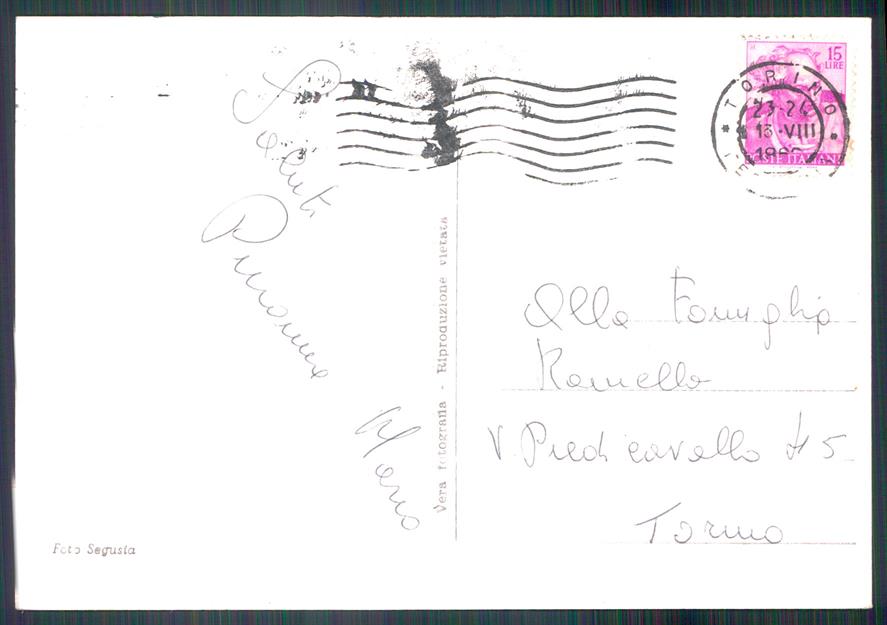 Saluti
Pinamma
Mario
Vera fotografia - Riproduzione vietata
Foto Segusia
15
LIRE
TORINO
23-24
13·VIII
POSTE ITALIANE
Alla Famiglia
Ramello
V. Piedicavallo 45
Torino